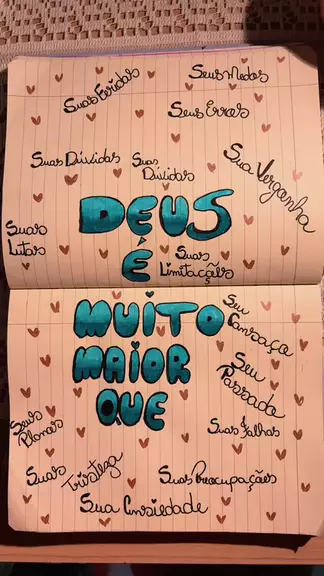 Suas Feridas
Seus Medos
Seus Erros
Suas Dúvidas
Suas
Dívidas
Sua Vergonha
DEUS
É
Suas
Lutas
Suas
Limitações
MUITO
MAIOR
QUE
Seu
Cansaço
Seu
Passado
Seus
Planos
Suas falhas
Suas
Tristeza
Suas Preocupações
Sua Ansiedade